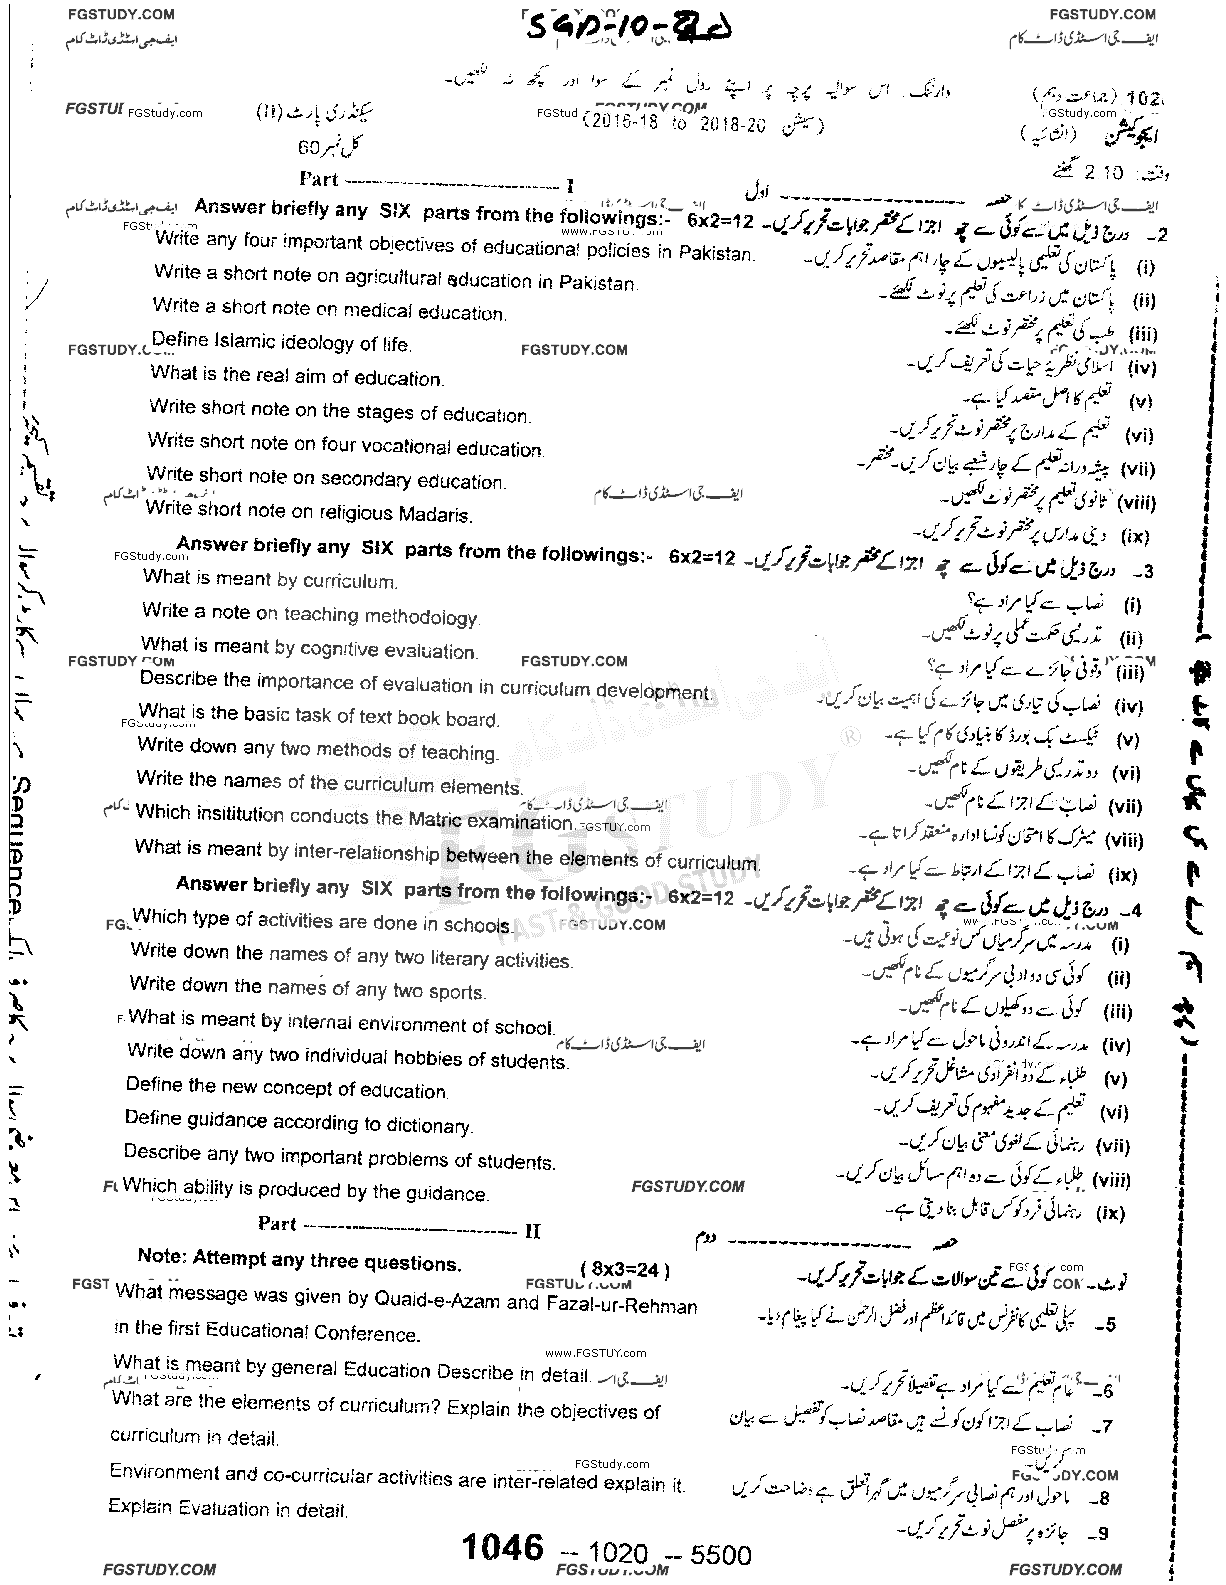 FGSTUDY.COM SGD-10-20 FGSTUDY.COM
ایف جی اسٹڈی ڈاٹ کام ایف جی اسٹڈی ڈاٹ کام
وارننگ۔ اس سوالیہ پرچہ پر اپنے رول نمبر کے سوا اور کچھ نہ لکھیں۔
102 (جماعت دہم) (سیشن 2016-18 to 2018-20) سیکنڈری پارٹ (II)
ایجوکیشن (انشائیہ) کل نمبر 60
وقت: 2.10 گھنٹے
Part ---------------------------- I حصہ ---------------------- اول
Answer briefly any SIX parts from the followings:- 6x2=12 2۔ درج ذیل میں سے کوئی سے چھ اجزا کے مختصر جوابات تحریر کریں۔
www.FGSTUY.com
Write any four important objectives of educational policies in Pakistan. (i) پاکستان کی تعلیمی پالیسیوں کے چار اہم مقاصد تحریر کریں۔
Write a short note on agricultural education in Pakistan. (ii) پاکستان میں زراعت کی تعلیم پر نوٹ لکھئے۔
Write a short note on medical education. (iii) طب کی تعلیم پر مختصر نوٹ لکھئے۔
Define Islamic ideology of life. (iv) اسلامی نظریۂ حیات کی تعریف کریں۔
FGSTUDY.COM
What is the real aim of education. (v) تعلیم کا اصل مقصد کیا ہے۔
Write short note on the stages of education. (vi) تعلیم کے مدارج پر مختصر نوٹ تحریر کریں۔
Write short note on four vocational education. (vii) پیشہ ورانہ تعلیم کے چار شعبے بیان کریں۔ مختصر۔
Write short note on secondary education. (viii) ثانوی تعلیم پر مختصر نوٹ لکھیں۔
ایف جی اسٹڈی ڈاٹ کام
Write short note on religious Madaris. (ix) دینی مدارس پر مختصر نوٹ تحریر کریں۔
Answer briefly any SIX parts from the followings:- 6x2=12 3۔ درج ذیل میں سے کوئی سے چھ اجزا کے مختصر جوابات تحریر کریں۔
FGStudy.com
What is meant by curriculum. (i) نصاب سے کیا مراد ہے؟
Write a note on teaching methodology. (ii) تدریسی حکمت عملی پر نوٹ لکھیں۔
What is meant by cognitive evaluation. (iii) وقوفی جائزے سے کیا مراد ہے؟
FGSTUDY.COM FGSTUDY.COM
Describe the importance of evaluation in curriculum development. (iv) نصاب کی تیاری میں جائزے کی اہمیت بیان کریں۔
What is the basic task of text book board. (v) ٹیکسٹ بک بورڈ کا بنیادی کام کیا ہے۔
Write down any two methods of teaching. (vi) دو تدریسی طریقوں کے نام لکھیں۔
Write the names of the curriculum elements. (vii) نصاب کے اجزا کے نام لکھیں۔
Which insititution conducts the Matric examination. (viii) میٹرک کا امتحان کونسا ادارہ منعقد کراتا ہے۔
What is meant by inter-relationship between the elements of curriculum. (ix) نصاب کے اجزا کے ارتباط سے کیا مراد ہے۔
FGSTUDY ®
FAST AND GOOD STUDY
Answer briefly any SIX parts from the followings:- 6x2=12 4۔ درج ذیل میں سے کوئی سے چھ اجزا کے مختصر جوابات تحریر کریں۔
Which type of activities are done in schools. FGSTUDY.COM (i) مدرسہ میں سرگرمیاں کس نوعیت کی ہوتی ہیں۔
Write down the names of any two literary activities. (ii) کوئی سی دو ادبی سرگرمیوں کے نام لکھیں۔
Write down the names of any two sports. (iii) کوئی سے دو کھیلوں کے نام لکھیں۔
What is meant by internal environment of school. (iv) مدرسہ کے اندرونی ماحول سے کیا مراد ہے۔
ایف جی اسٹڈی ڈاٹ کام
Write down any two individual hobbies of students. (v) طلباء کے دو انفرادی مشاغل تحریر کریں۔
Define the new concept of education. (vi) تعلیم کے جدید مفہوم کی تعریف کریں۔
Define guidance according to dictionary. (vii) رہنمائی کے لغوی معنی بیان کریں۔
Describe any two important problems of students. (viii) طلباء کے کوئی سے دو اہم مسائل بیان کریں۔
Which ability is produced by the guidance. FGSTUDY.COM (ix) رہنمائی فرد کو کس قابل بنا دیتی ہے۔
Part ---------------------------- II حصہ ---------------------- دوم
Note: Attempt any three questions. (8x3=24) نوٹ۔ کوئی سے تین سوالات کے جوابات تحریر کریں۔
What message was given by Quaid-e-Azam and Fazal-ur-Rehman 5۔ پہلی تعلیمی کانفرنس میں قائداعظم اور فضل الرحمٰن نے کیا پیغام دیا۔
in the first Educational Conference.
www.FGSTUY.com
What is meant by general Education Describe in detail. 6۔ عام تعلیم سے کیا مراد ہے تفصیلاً تحریر کریں۔
What are the elements of curriculum? Explain the objectives of 7۔ نصاب کے اجزا کون کونسے ہیں مقاصد نصاب کو تفصیل سے بیان
curriculum in detail. کریں۔
FGStudy.com FGSTUDY.COM
Environment and co-curricular activities are inter-related explain it. 8۔ ماحول اور ہم نصابی سرگرمیوں میں گہرا تعلق ہے وضاحت کریں
Explain Evaluation in detail. 9۔ جائزہ پر مفصل نوٹ تحریر کریں۔
1046 -- 1020 -- 5500
FGSTUDY.COM FGSTUDY.COM FGSTUDY.COM